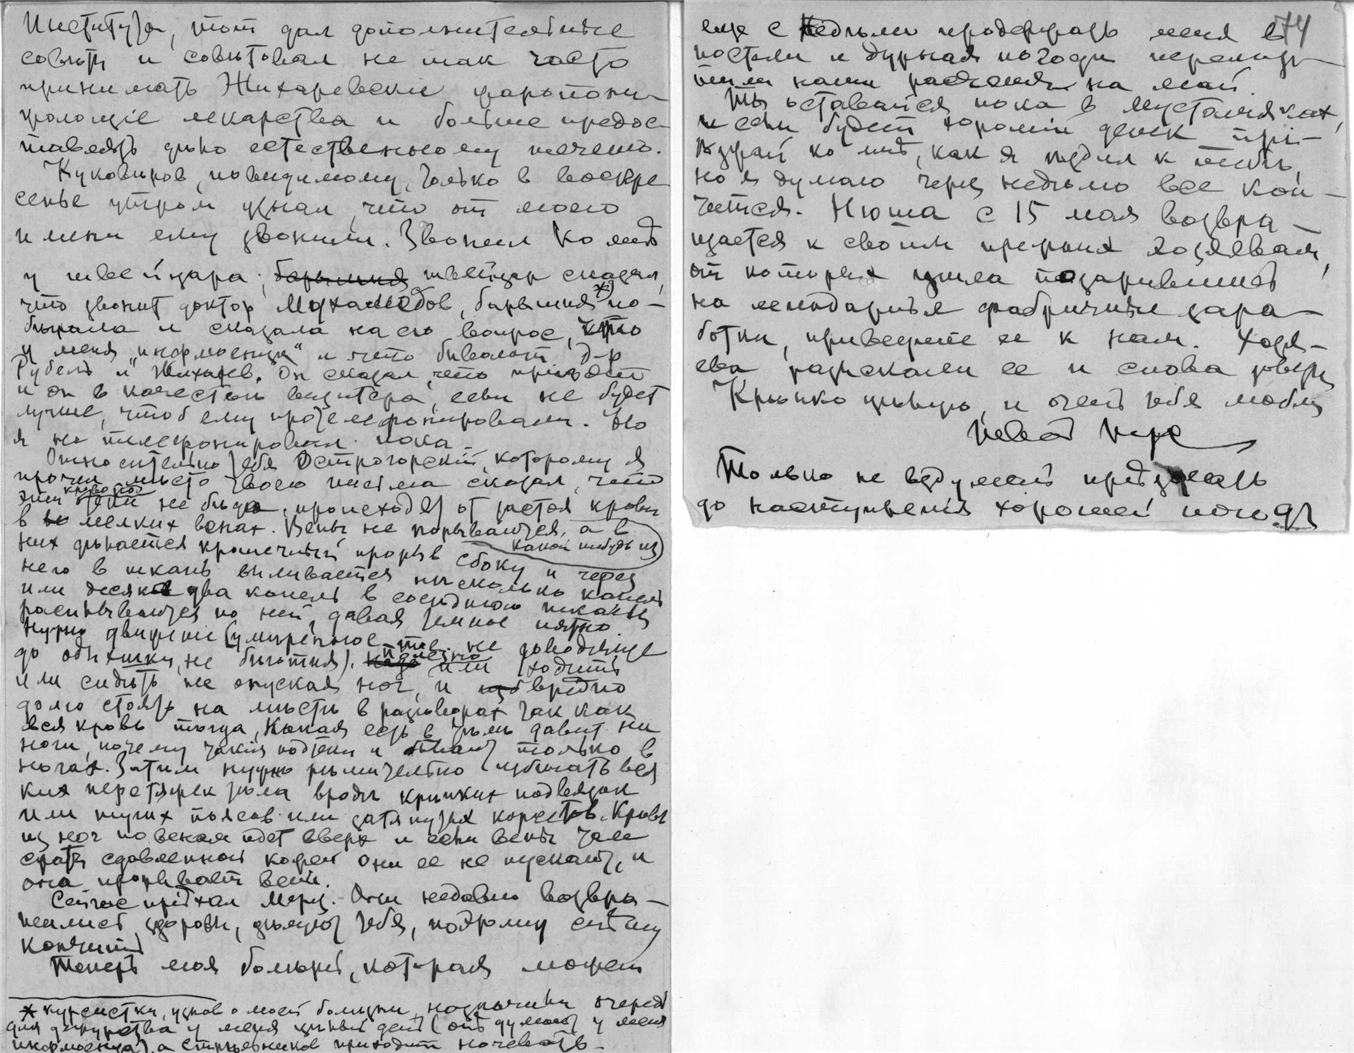 Института, тот дал дополнительные
советы и советовал не так часто
принимать Жихаревскiе
лекарства и больше предос-
тавлять дѣло естественному теченiю.
Куковеров, повидимому, только в воскре
сенье утром узнал, что от моего
имени ему звонили. Звонил ко мнѣ
у швейцара; барышня швейцар сказал,
что звонит доктор барышня * по-
бѣжала и сказала на его вопрос, что
у меня "инфлюенца" и что бывают д-р
и Жихарев. Он сказал, что прiѣдет
и он в качествѣ визитера, если не будет
лучше, чтоб ему протелефонировали. Но
я не телефонировал пока.
Относительно тебя Острогорскiй, которому я
прочел мѣсто твоего письма сказал, что
эти не бѣда, происходят от застоя крови
в мелких венах. Вены не порываются, а в
них дѣлается крошечный прорыв какой нибудь из
сбоку и через
него в ткань выливается нѣсколько капель
или десятка два капель в сосѣднюю ткань
расплываются по ней, давая темное пятно.
Нужно движенiе (умѣренное не доводящее
до одышки, не бѣготня), полезно или ходить
или сидѣть не опуская ног, и вредно
долго стоять на мѣстѣ в разговорах так как
вся кровь тогда, какая есть в тѣлѣ давит на
ноги, почему такiя и бывают только в
ногах. Затѣм нужно рѣшительно избѣгать вся
ких перетяжек тѣла вродѣ крѣпких подвязок
или тугих поясов или затянутых корсетов. Кровь
из ног по венам идет вверх и если вены
сдавленной они ее не пускают, и
она прорывает вены.
Сейчас прiѣхал Мерц. Они недавно возвра-
тились, здоровы, цѣлуют тебя, поэтому
кончить
Теперь моя болѣзнь, которая может
* курсистки, узнав о моей болѣзни, назначили очередь
для дежурства у меня цѣлый день (онѣ думают у меня
инфлюенца), а приходит ночевать.
74
еще с недѣлю продержать меня в
постели и дурная погода перемѣ-
нили наши на май.
Ты оставайся пока в Мустамяках,
и если будет хорошiй денек прi-
ѣзжай ко мнѣ, как я ѣздил к тебѣ,
но я думаю через недѣлю все кон-
чится. Нюша с 15 мая возвра-
щается к своим прежним хозяевам,
от которых ушла позарившись
на легендарные фабричные зара-
ботки, приведшiе ее к нам. Хозя-
ева разыскали ее и снова
Крѣпко цѣлую, и очень тебя люблю
Только не вздумай прiѣзжать
до наступленiя хорошей погоды